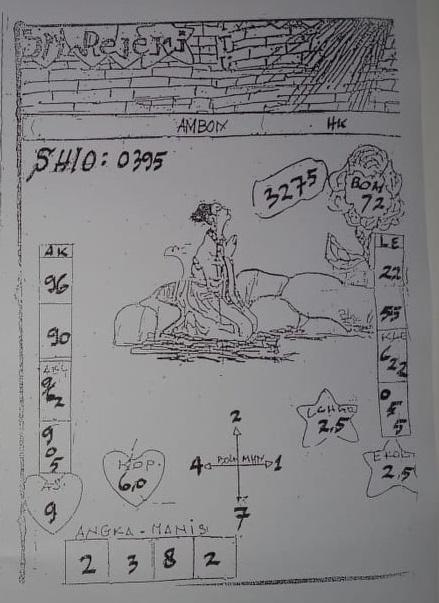 Rejeki
AMBON HK
SHIO: 0395
3275
BOM
72
AK
96
90
AKL
962
905
AS
9
KOP.
6,0
2
4 BOM MHN 1
7
LE
22
55
KLE
622
055
2,5
EKOR
2,5
ANGKA - MANIS
2 3 8 2